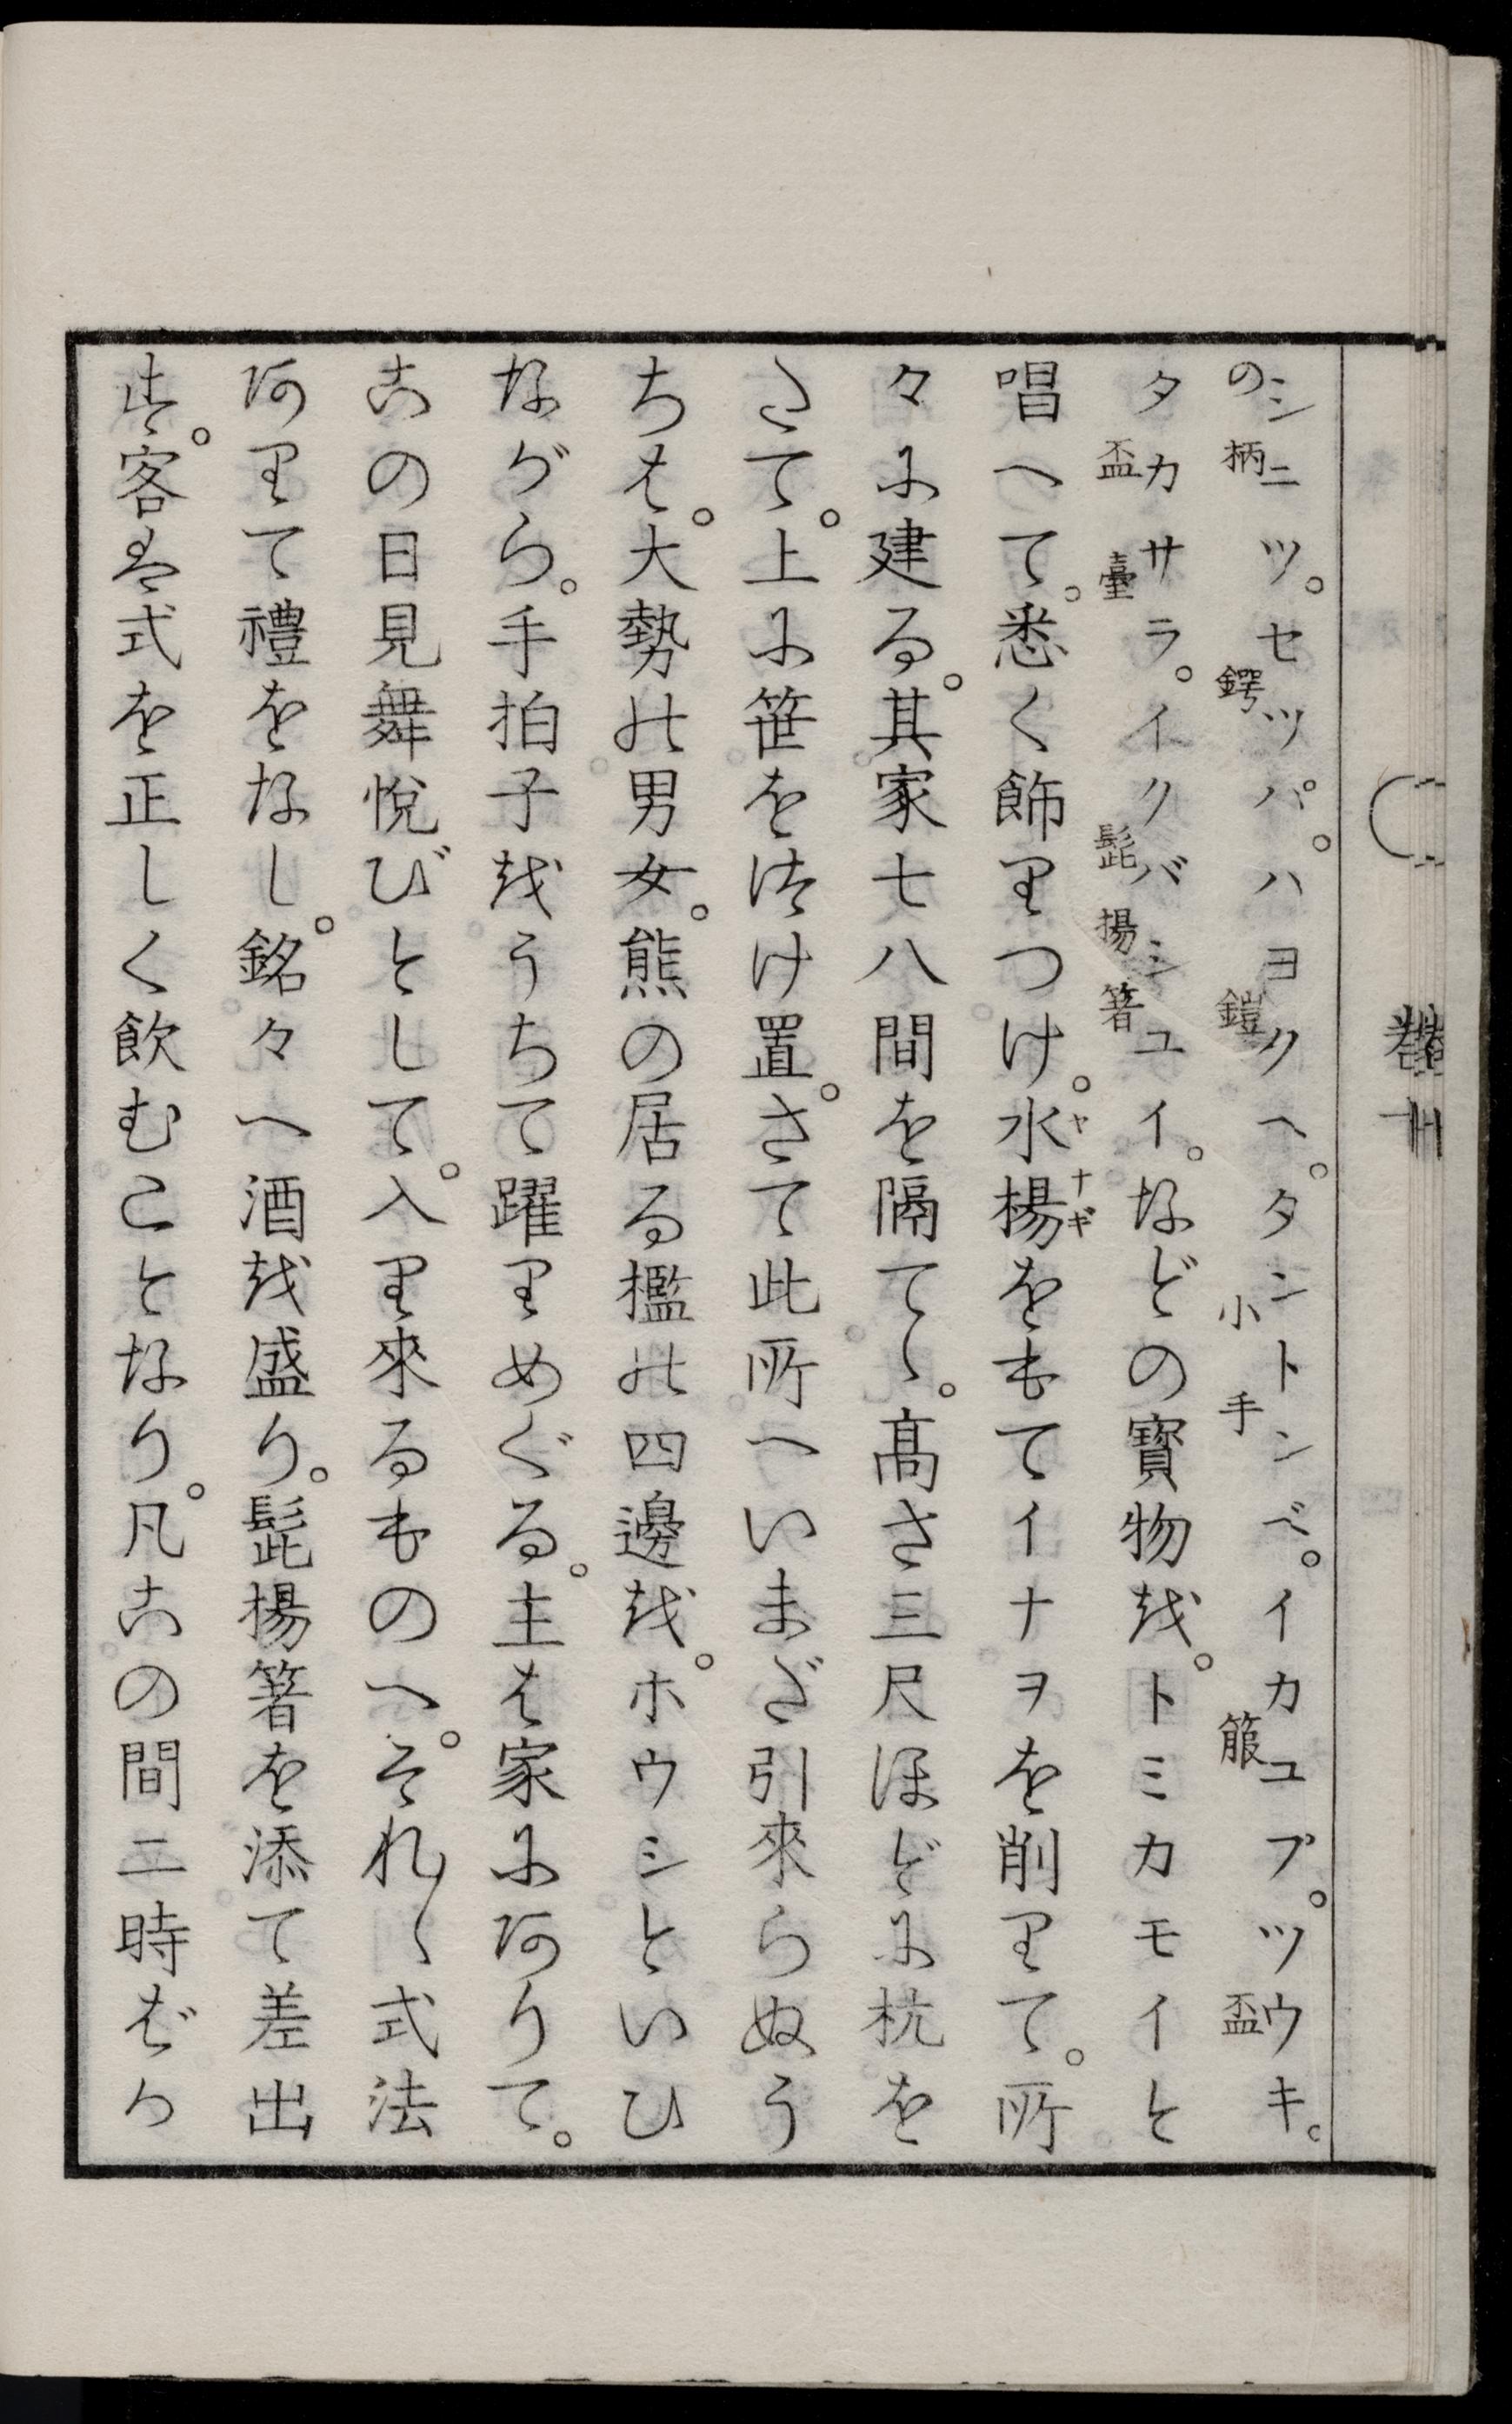 シニツ。セツパ。ハヨクヘ。タントンベ。イカユプ。ツウキ。
の柄 鍔 鎧 小手 箙 盃
タカサラ。イクバシユイ。などの寳物越。トミカモイと
盃臺 髭揚箸
唱へて。悉く飾りつけ。水楊をもてイナヲを削りて。所
ヤナギ
々に建る。其家七八間を隔て〱。髙さ三尺ほどに杭を
さて。上に笹を津け置。さて此所へいまだ引來らぬう
ちは。大勢の男女。熊の居る檻の四邊越。ホウシといひ
ながら。手拍子越うちて躍りめぐる。主は家に阿りて。
古の日見舞悅びとして。入り來るものへ。それ〱式法
阿りて禮をなし。銘々へ酒越盛り。髭揚箸を添て差出
す。客は式を正しく飲むことなり。凡古の間二時ばか